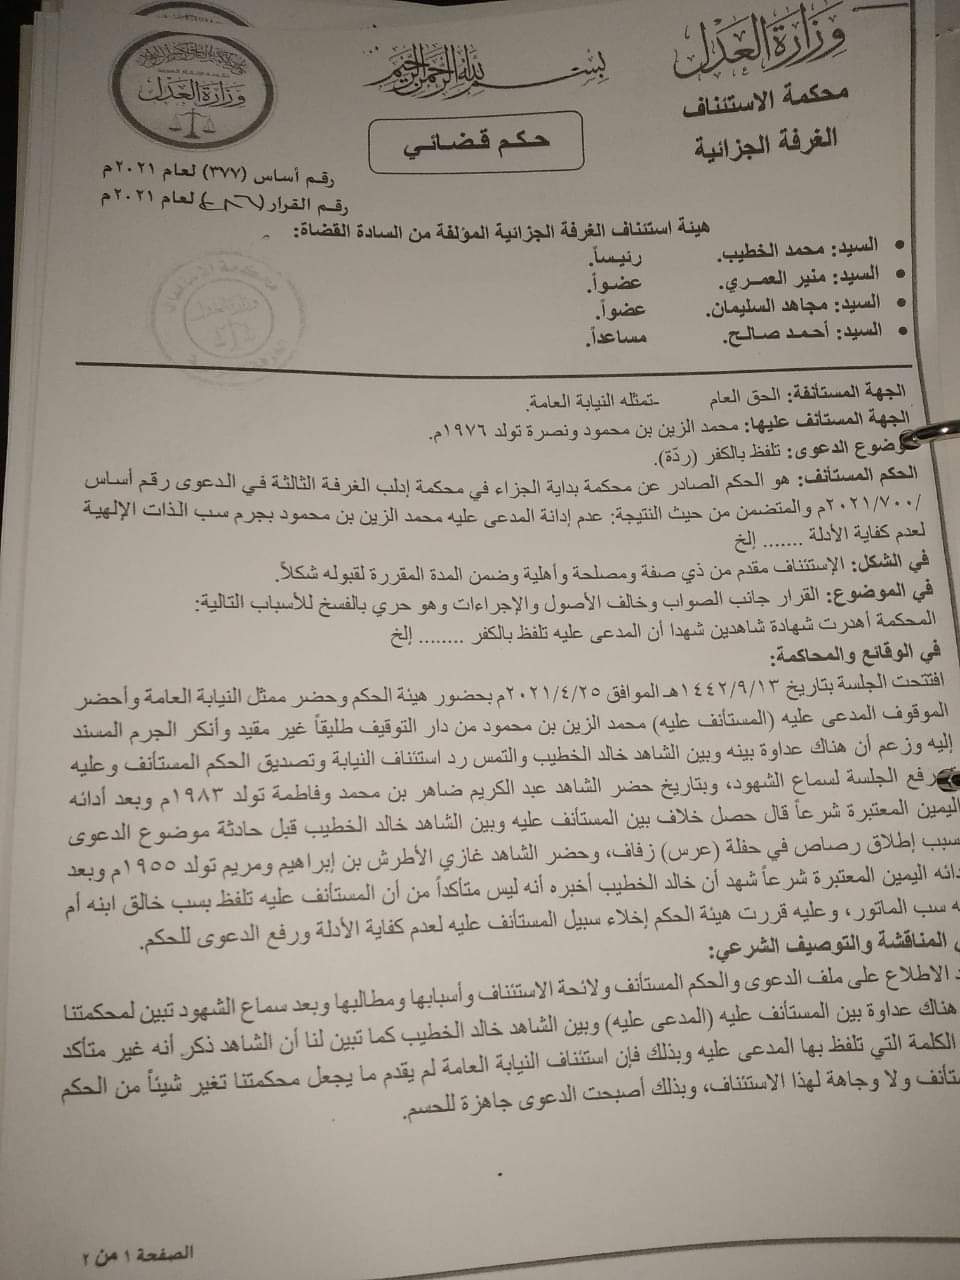 وزارة العدل
محكمة الاستئناف
الغرفة الجزائية
بسم الله الرحمن الرحيم
حكم قضائي
وزارة العدل
رقم أساس (٣٧٧) لعام ٢٠٢١م
رقم القرار ( ) لعام ٢٠٢١م
هيئة استئناف الغرفة الجزائية المؤلفة من السادة القضاة:
• السيد: محمد الخطيب. رئيساً.
• السيد: منير العمري. عضواً.
• السيد: مجاهد السليمان. عضواً.
• السيد: أحمد صالح. مساعداً.
الجهة المستأنفة: الحق العام -تمثله النيابة العامة.
الجهة المستأنف عليها: محمد الزين بن محمود ونصرة تولد ١٩٧٦م.
موضوع الدعوى: تلفظ بالكفر (ردّة).
الحكم المستأنف: هو الحكم الصادر عن محكمة بداية الجزاء في محكمة إدلب الغرفة الثالثة في الدعوى رقم أساس
/٢٠٢١/٧٠٠م والمتضمن من حيث النتيجة: عدم إدانة المدعى عليه محمد الزين بن محمود بجرم سب الذات الإلهية
لعدم كفاية الأدلة ....... إلخ
في الشكل: الإستئناف مقدم من ذي صفة ومصلحة وأهلية وضمن المدة المقررة لقبوله شكلاً.
في الموضوع: القرار جانب الصواب وخالف الأصول والإجراءات وهو حري بالفسخ للأسباب التالية:
المحكمة أهدرت شهادة شاهدين شهدا أن المدعى عليه تلفظ بالكفر ........ إلخ
في الوقائع والمحاكمة:
افتتحت الجلسة بتاريخ ١٤٤٢/٩/١٣هـ الموافق ٢٠٢١/٤/٢٥م بحضور هيئة الحكم وحضر ممثل النيابة العامة وأحضر
الموقوف المدعى عليه (المستأنف عليه) محمد الزين بن محمود من دار التوقيف طليقاً غير مقيد وأنكر الجرم المسند
إليه وزعم أن هناك عداوة بينه وبين الشاهد خالد الخطيب والتمس رد استئناف النيابة وتصديق الحكم المستأنف وعليه
رفع الجلسة لسماع الشهود، وبتاريخ حضر الشاهد عبد الكريم ضاهر بن محمد وفاطمة تولد ١٩٨٣م وبعد أدائه
اليمين المعتبرة شرعاً قال حصل خلاف بين المستأنف عليه وبين الشاهد خالد الخطيب قبل حادثة موضوع الدعوى
سبب إطلاق رصاص في حفلة (عرس) زفاف، وحضر الشاهد غازي الأطرش بن إبراهيم ومريم تولد ١٩٥٥م وبعد
دائه اليمين المعتبرة شرعاً شهد أن خالد الخطيب أخبره أنه ليس متأكداً من أن المستأنف عليه تلفظ بسب خالق ابنه أم
ه سب الماتور، وعليه قررت هيئة الحكم إخلاء سبيل المستأنف عليه لعدم كفاية الأدلة ورفع الدعوى للحكم.
المناقشة والتوصيف الشرعي:
د الاطلاع على ملف الدعوى والحكم المستأنف ولائحة الاستئناف وأسبابها ومطالبها وبعد سماع الشهود تبين لمحكمتنا
هناك عداوة بين المستأنف عليه (المدعى عليه) وبين الشاهد خالد الخطيب كما تبين لنا أن الشاهد ذكر أنه غير متأكد
الكلمة التي تلفظ بها المدعى عليه وبذلك فإن استئناف النيابة العامة لم يقدم ما يجعل محكمتنا تغير شيئاً من الحكم
ستأنف ولا وجاهة لهذا الاستئناف، وبذلك أصبحت الدعوى جاهزة للحسم.
الصفحة ١ من ٢